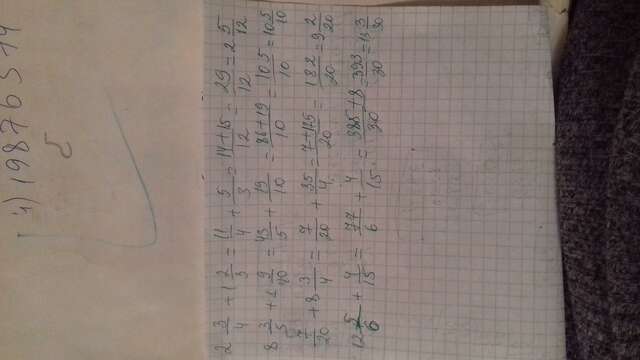 2 3/4 + 1 2/3 = 11/4 + 5/3 = 14+15/12 = 29/12 = 2 5/12
8 3/5 + 1 9/10 = 43/5 + 19/10 = 86+19/10 = 105/10 = 10 5/10
7/20 + 8 3/4 = 7/20 + 35/4 = 7+175/20 = 182/20 = 9 2/20
12 5/6 + 4/15 = 77/6 + 4/15 = 385+8/30 = 393/30 = 13 3/30